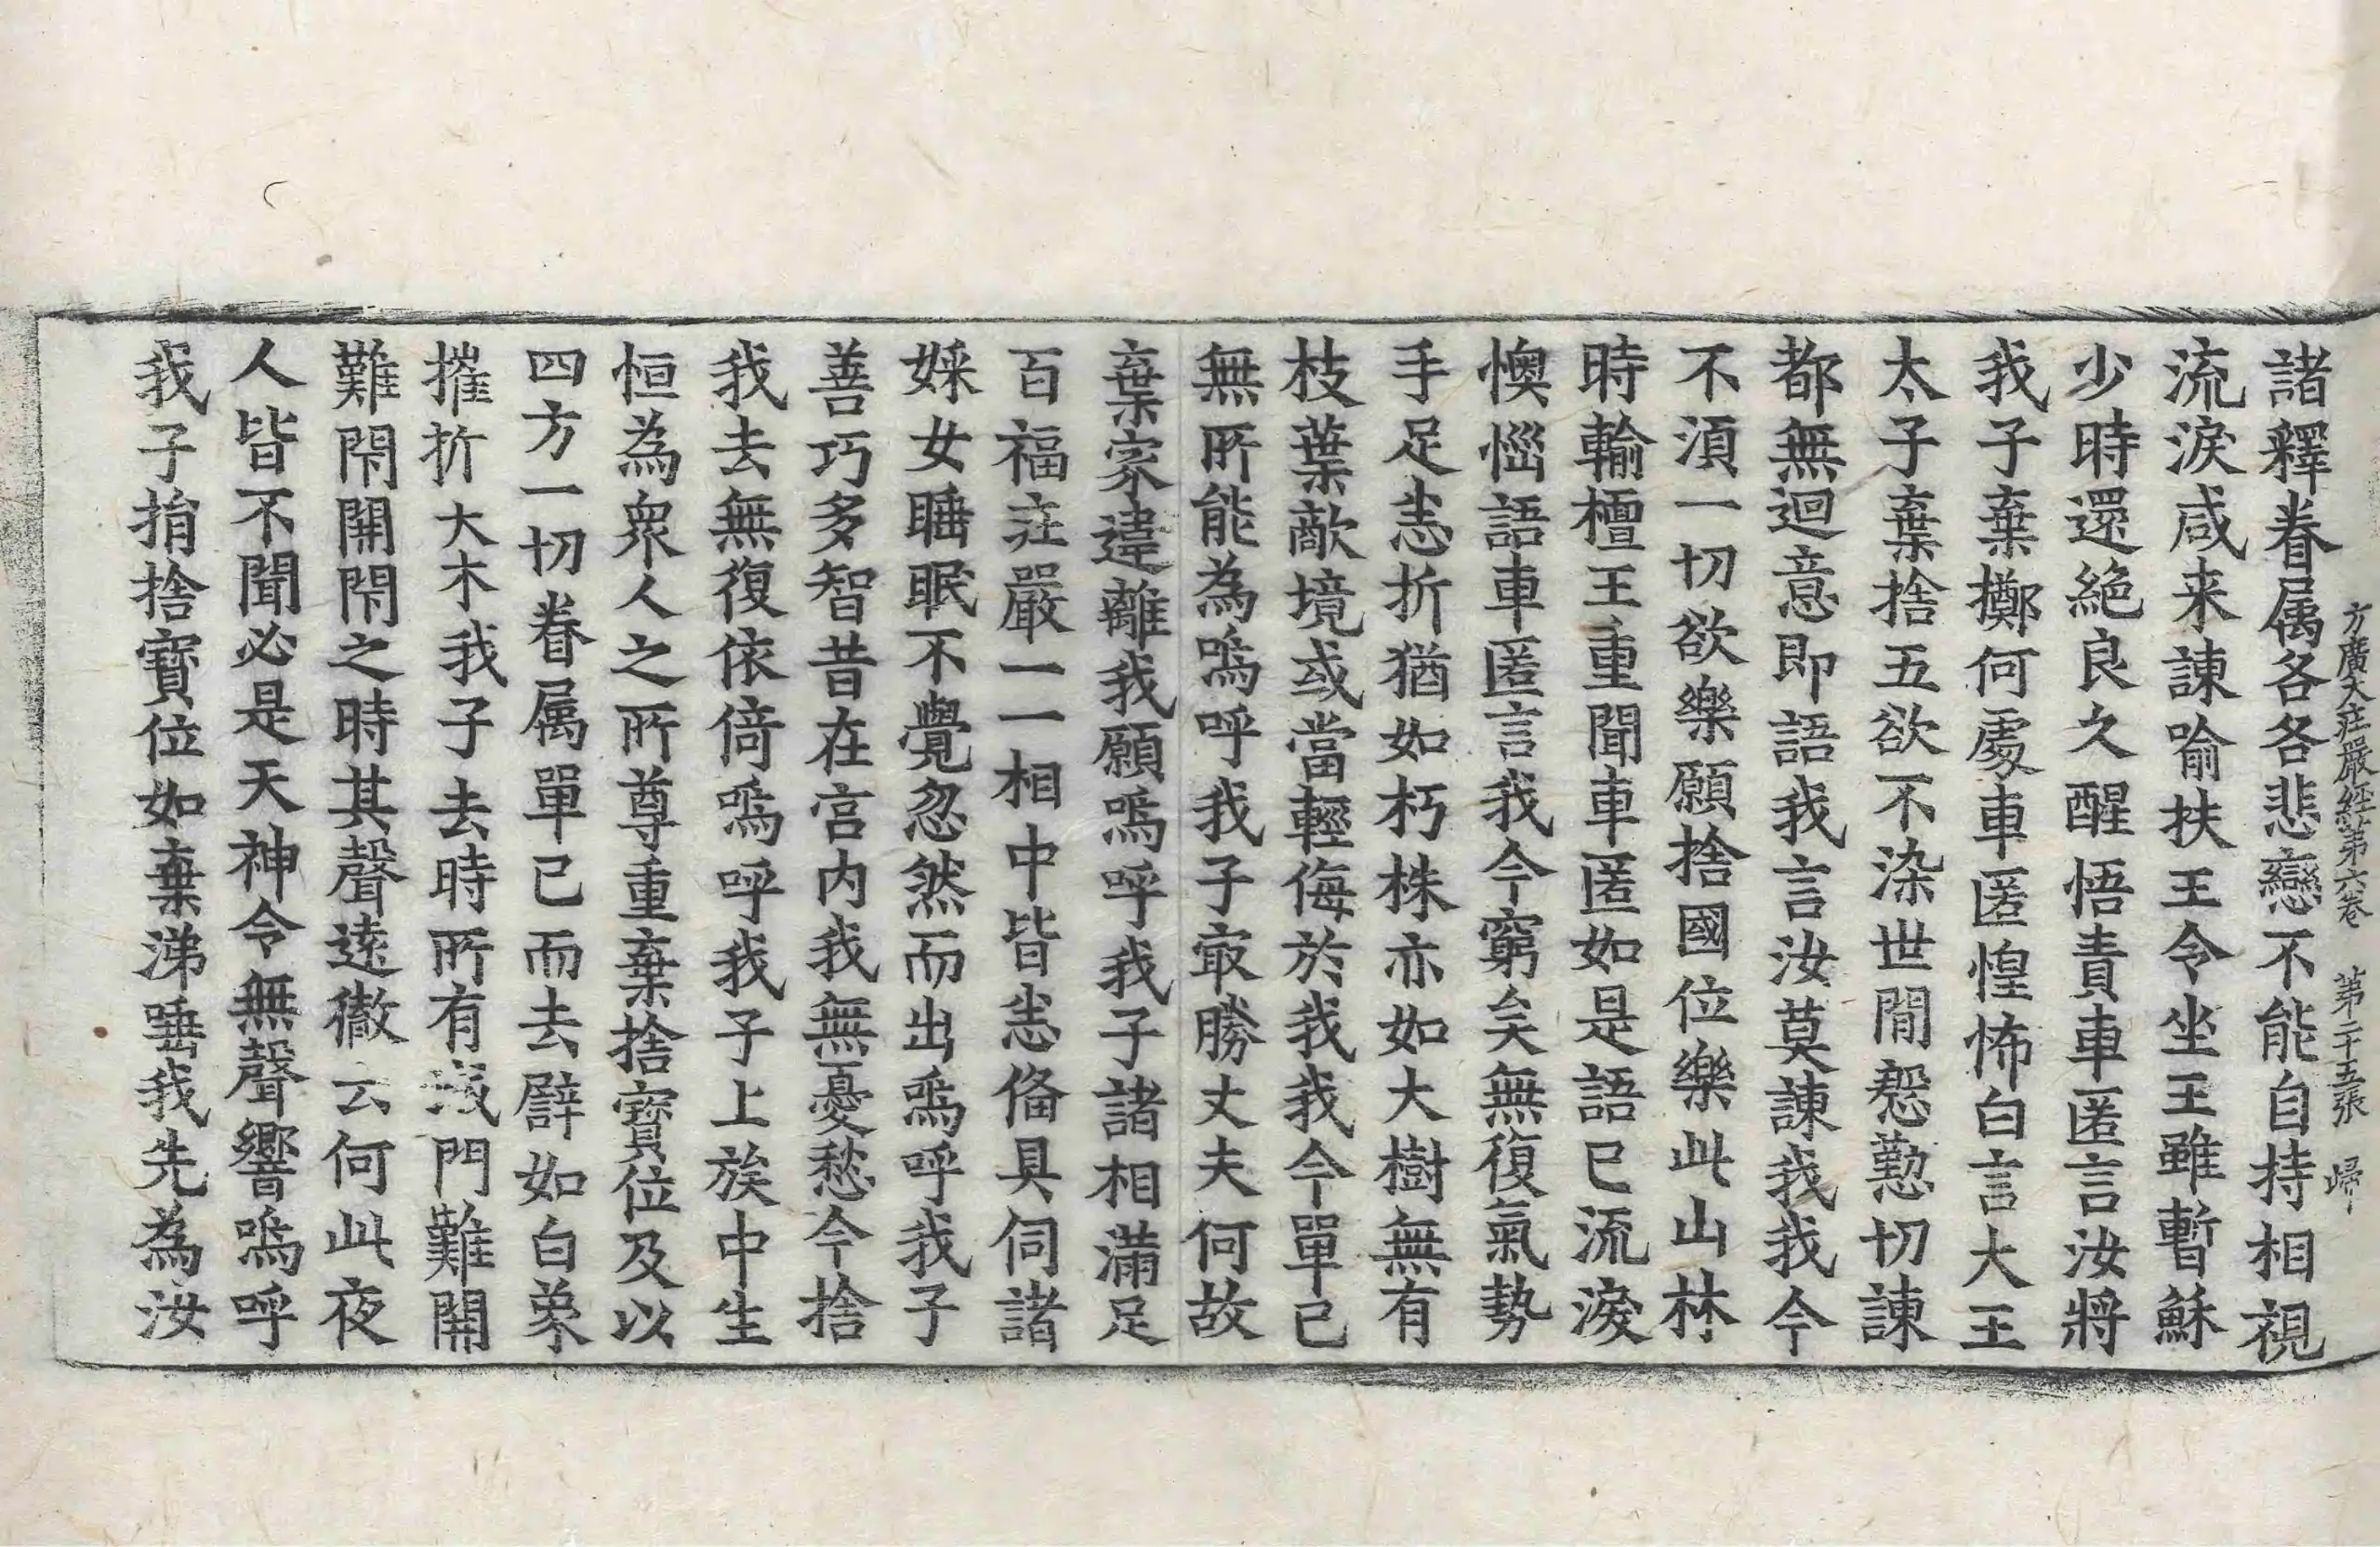 方廣大庄嚴經第六卷 第二十五張 歸
諸釋眷属各各悲戀不能自持相視
流淚咸来諫喻扶王令坐王雖暫蘇
少時還絶良久醒悟責車匿言汝將
我子棄擲何處車匿惶怖白言大王
太子棄捨五欲不染世間慇懃切諫
都無迴意即語我言汝莫諫我我今
不湏一切欲樂願捨國位樂此山林
時輸檀王重聞車匿如是語已流淚
懊惱語車匿言我今窮矣無復氣勢
手足恚折猶如朽株亦如大樹無有
枝葉敵境或當輕侮於我我今單己
無所能為嗚呼我子㝡勝丈夫何故
棄家違離我願嗚呼我子諸相滿足
百福庄嚴一一相中皆恚俻具伺諸
婇女睡眠不覺忽然而出嗚呼我子
善巧多智昔在宫内我無憂愁今捨
我去無復依倚嗚呼我子上族中生
恒為衆人之所尊重棄捨寳位及以
四方一切眷属單己而去辟如白象
摧折大木我子去時所有門難開
難閇開閇之時其聲逺徹云何此夜
人皆不聞必是天神令無聲響嗚呼
我子捐捨寳位如棄涕唾我先為汝